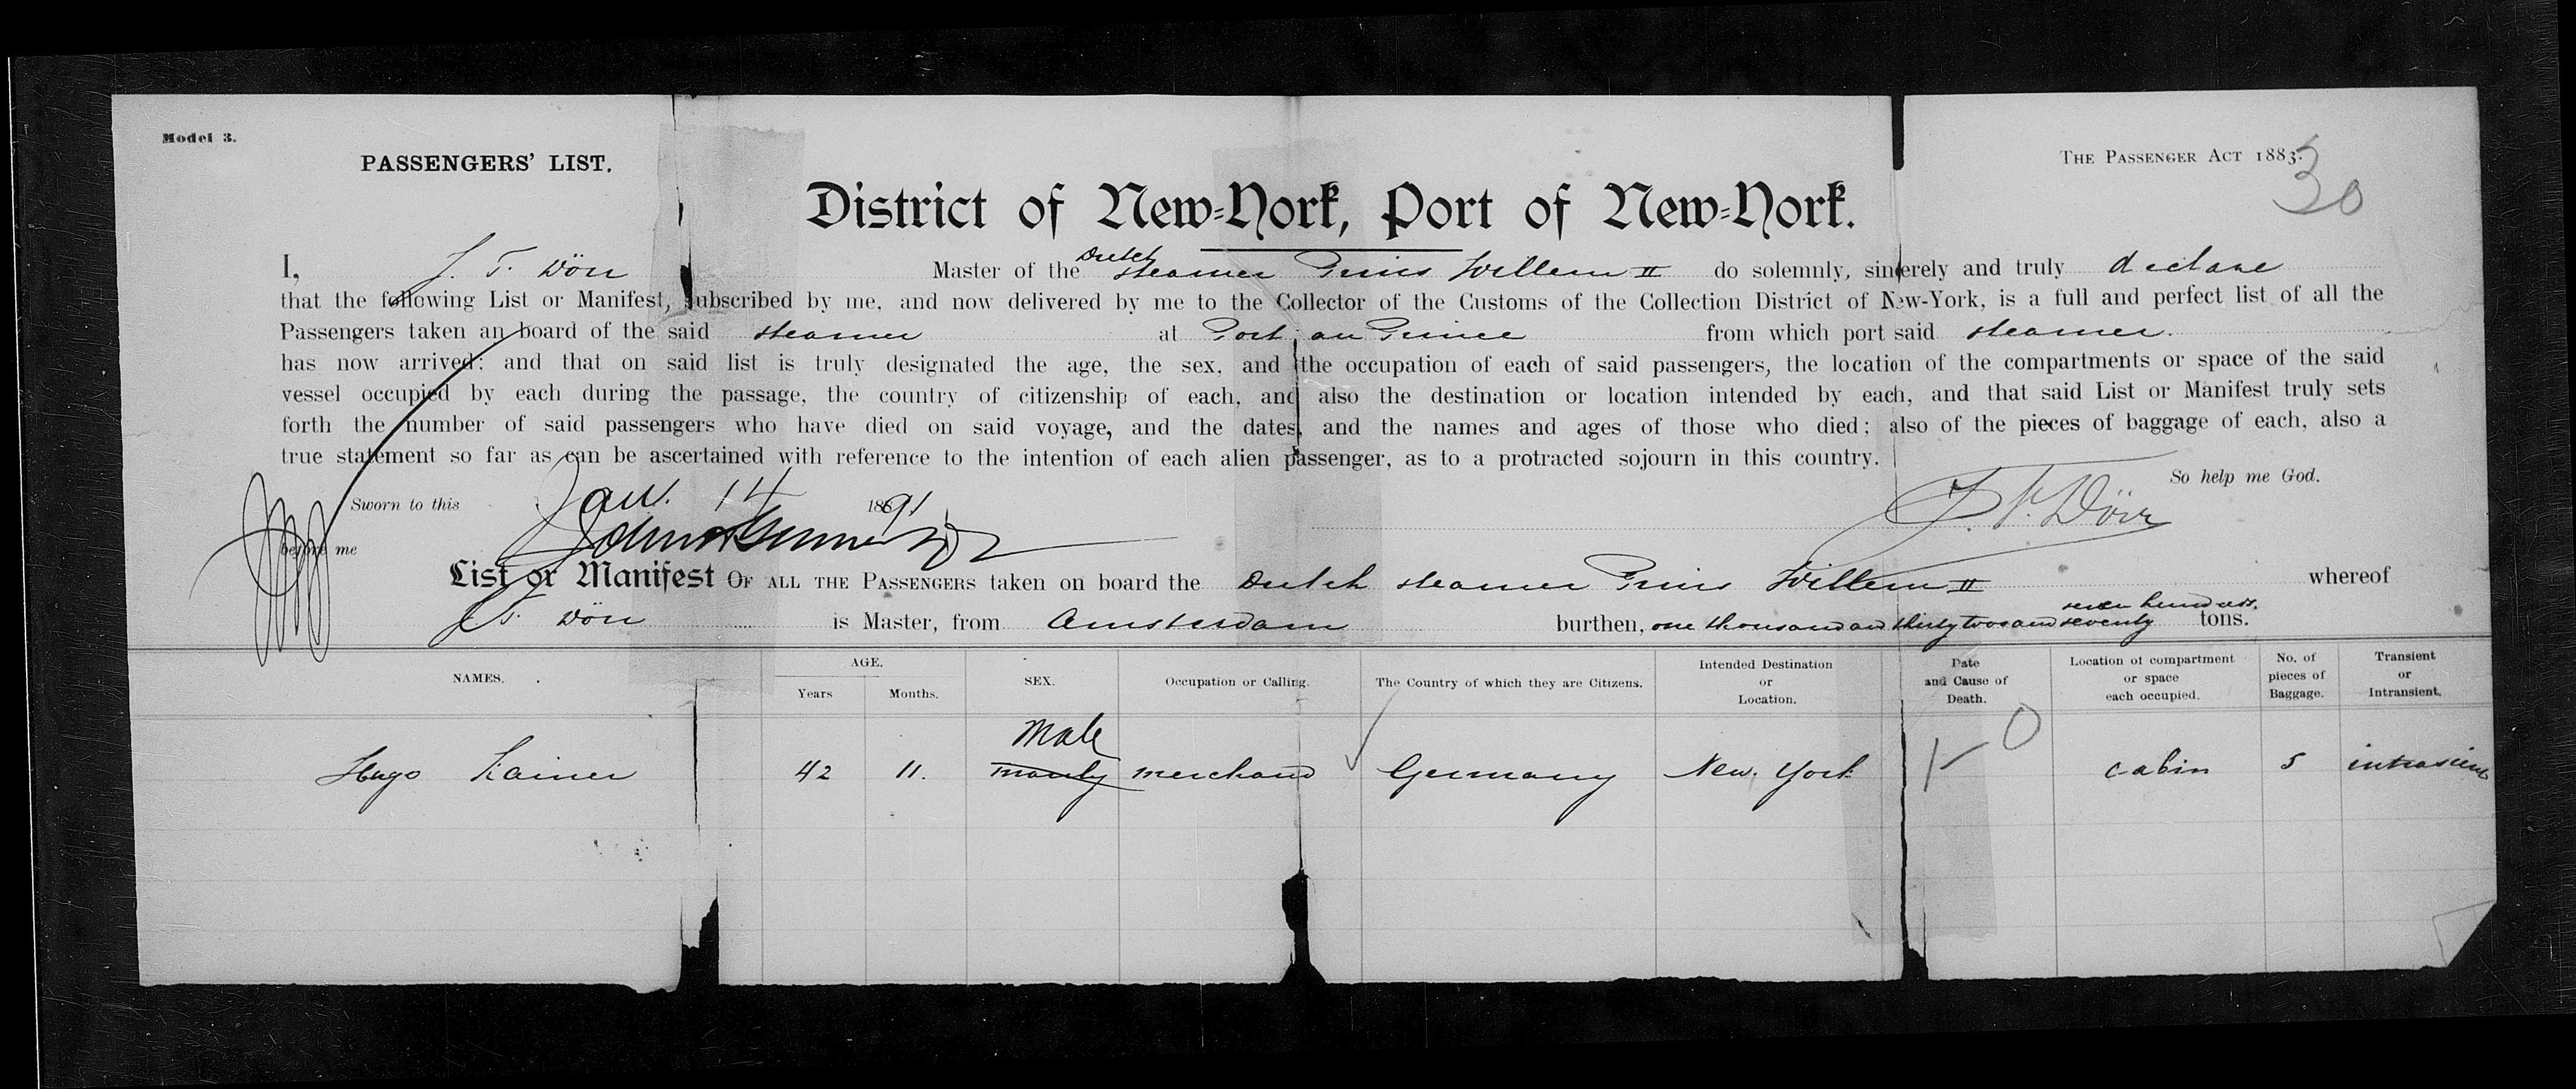 Model 3.
PASSENGERS' LIST.
THE PASSENGER ACT 1883.
30
District of New-York, Port of New-York.
I, J. T. Dörr Master of the Dutch steamer Prins Willem II do solemnly, sincerely and truly declare
that the following List or Manifest, subscribed by me, and now delivered by me to the Collector of the Customs of the Collection District of New-York, is a full and perfect list of all the
Passengers taken an board of the said steamer at Port au Prince from which port said steamer
has now arrived; and that on said list is truly designated the age, the sex, and the occupation of each of said passengers, the location of the compartments or space of the said
vessel occupied by each during the passage, the country of citizenship of each, and also the destination or location intended by each, and that said List or Manifest truly sets
forth the number of said passengers who have died on said voyage, and the dates, and the names and ages of those who died; also of the pieces of baggage of each, also a
true statement so far as can be ascertained with reference to the intention of each alien passenger, as to a protracted sojourn in this country.
So help me God.
Sworn to this Jan. 14 1891
J. T. Dörr
before me
List or Manifest OF ALL THE PASSENGERS taken on board the Dutch steamer Prins Willem II whereof
J. T. Dörr is Master, from Amsterdam burthen, one thousand and thirty two and seventy seven hundreds. tons.
NAMES. AGE. Years Months. SEX. Occupation or Calling. The Country of which they are Citizens. Intended Destination or Location. Date and Cause of Death. Location of compartment or space each occupied. No. of pieces of Baggage. Transient or Intransient.
Male
Hugo Kainer 42 11. manly merchand Germany New. York cabin 5 intrasient